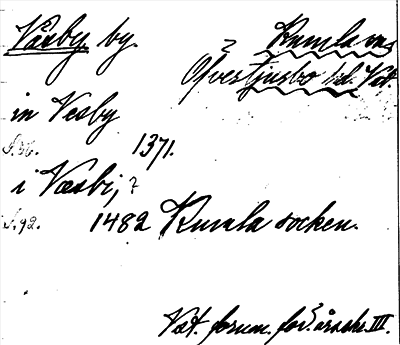 Väsby by. Rumla sn,
Öfvertjusbo hd. Vst.
in Vesby
S. 36. 1371.
i Væsbi, ?
S. 92. 1482 Rumla socken.
Väst. fornm. för. årsskr. III.